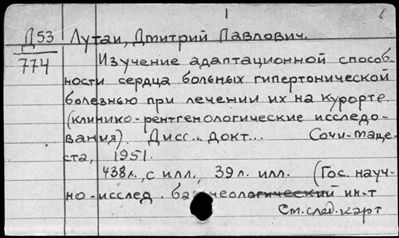 1
Д53 Лутай, Дмитрий Павлович.
774 Изучение адаптационной способ-
ности сердца больных гипертонической
болезнью при лечении их на курорте.
(клинико-рентгенологические исследо-
вания). Дисс... Докт... Сочи-Маце-
ста, 1951.
438 л., с илл., 39 л. илл. (Гос. науч-
но-исслед. бальнеологический ин-т
См. след. карт